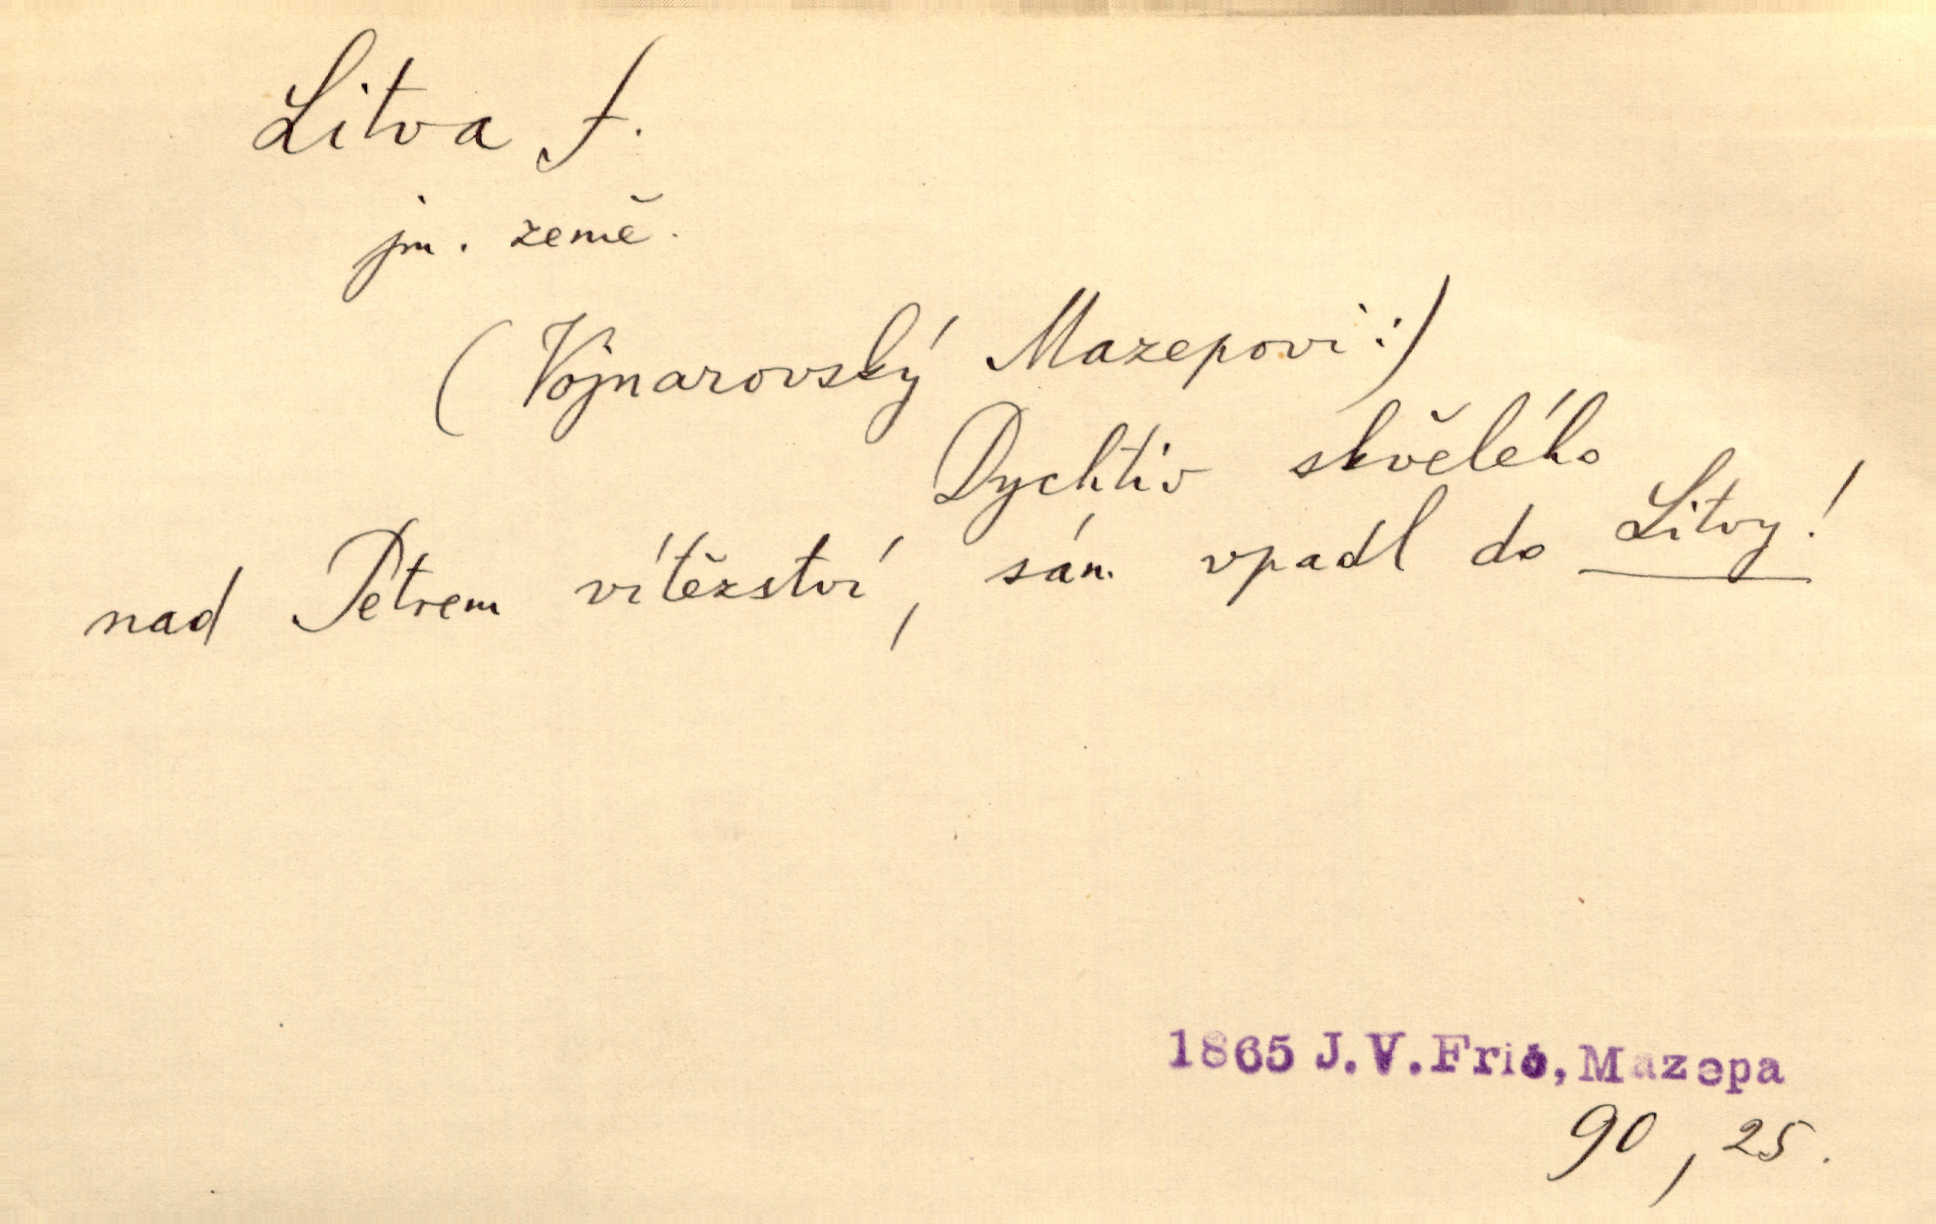 Litva f.
jm. země.
(Vojnarovský Mazepovi:)
Dychtiv skvělého
nad Petrem vítězství, sám vpadl do Litvy!
1865 J.V.Frič, Mazepa
90, 25.